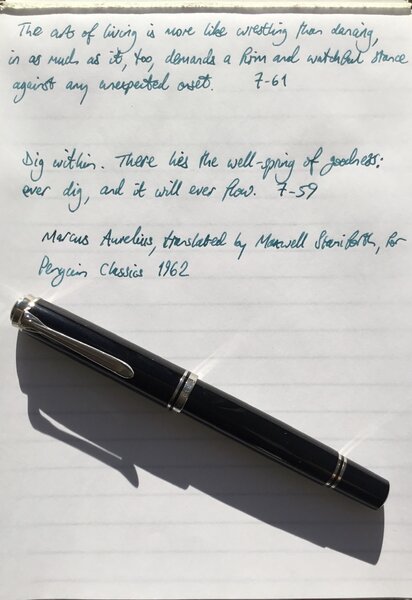 The art of living is more like wrestling than dancing,
in as much as it, too, demands a firm and watchful stance
against any unexpected onset. 7-61
Dig within. There lies the well-spring of goodness:
ever dig, and it will ever flow. 7-59
Marcus Aurelius, translated by Maxwell Staniforth, for
Penguin Classics 1962